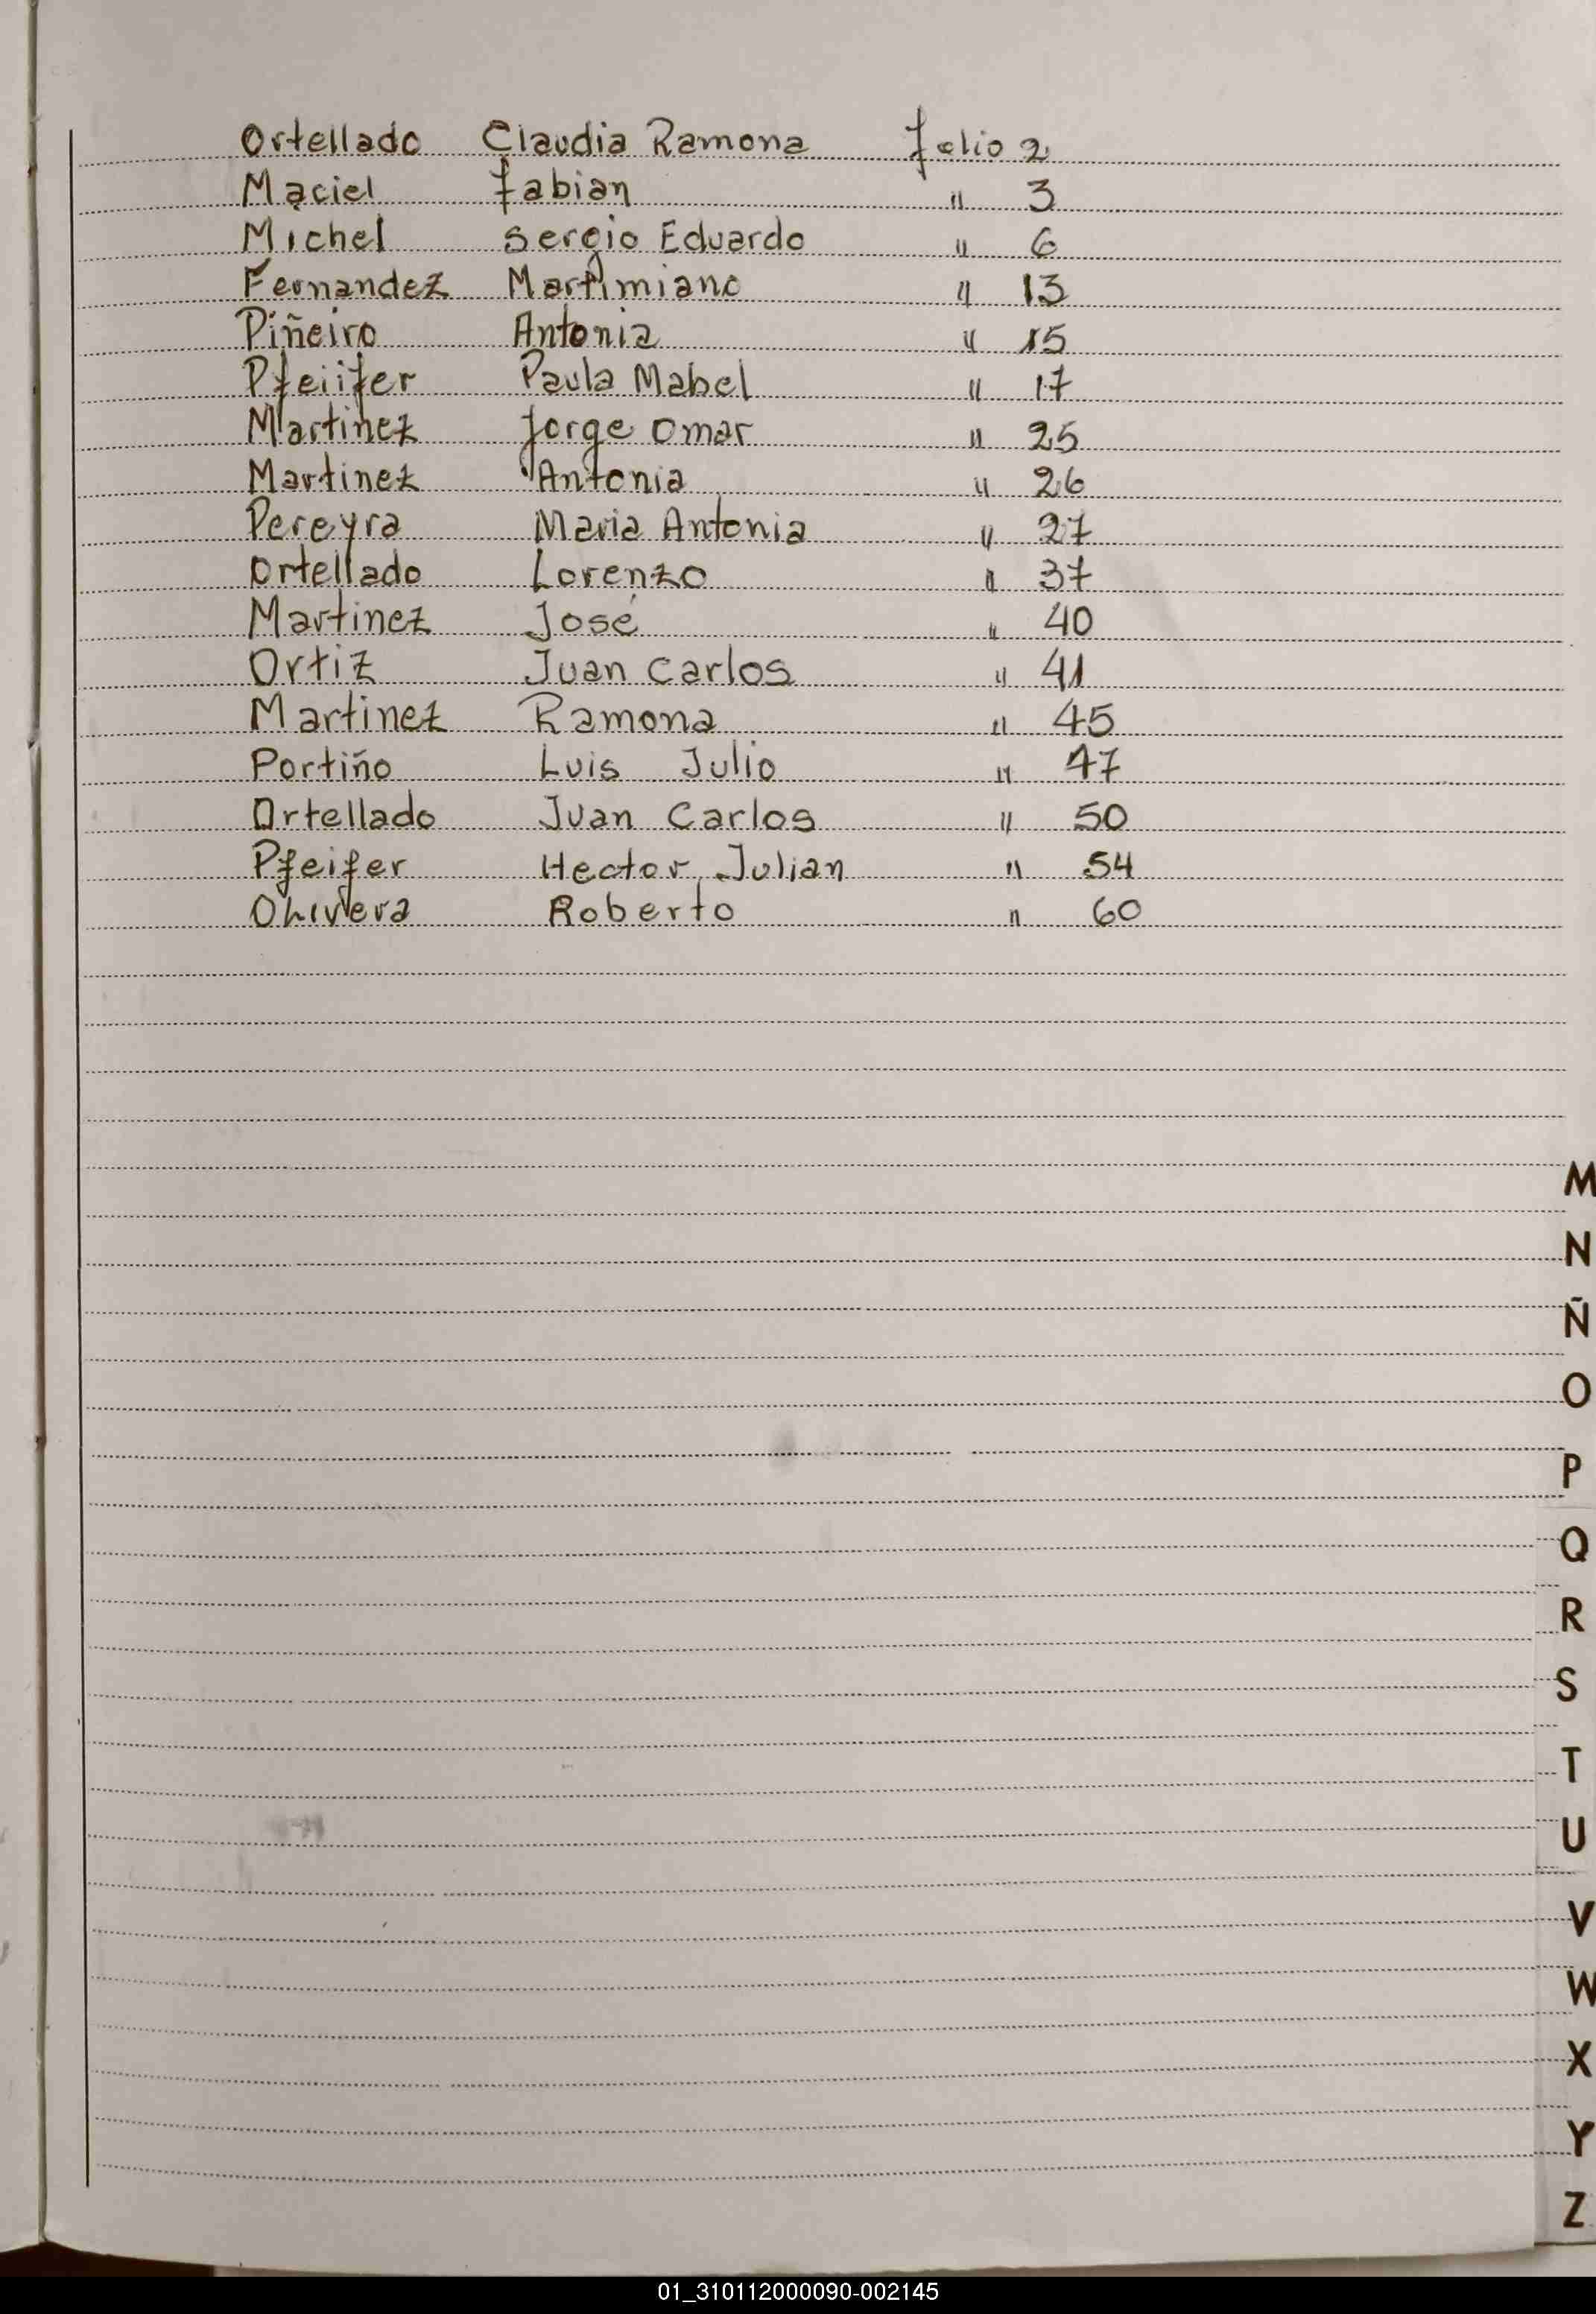 Ortellado Claudia Ramona folio 2
Maciel Fabian " 3
Michel Sergio Eduardo " 6
Fernandez Martimiano " 13
Piñeiro Antonia " 15
Pfeiifer Paula Mabel " 17
Martinez Jorge Omar " 25
Martinez Antonia " 26
Pereyra Maria Antonia " 27
Ortellado Lorenzo " 37
Martinez José " 40
Ortiz Juan Carlos " 41
Martinez Ramona " 45
Portiño Luis Julio " 47
Ortellado Juan Carlos " 50
Pfeifer Hector Julian " 54
Roberto " 60
M
N
Ñ
O
P
Q
R
S
T
U
V
W
X
Y
Z
01_310112000090-002145